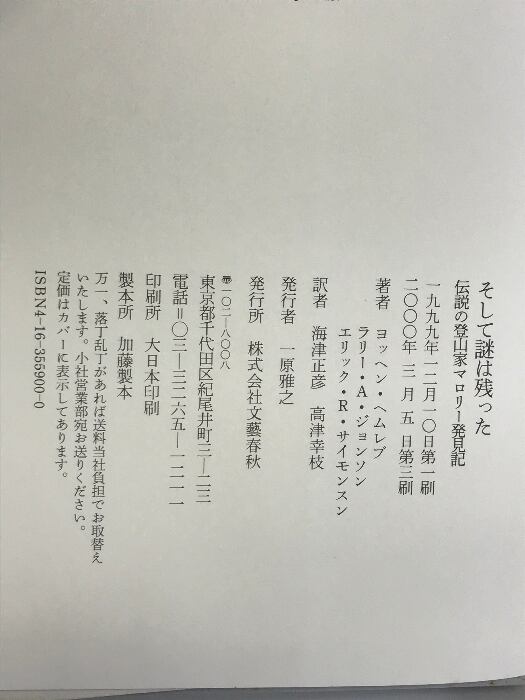 そして謎は残った
伝説の登山家マロリー発見記
一九九九年一二月一〇日第一刷
二〇〇〇年 三 月 五 日第三刷
著者 ヨッヘン・ヘムレブ
ラリー・A・ジョンソン
エリック・R・サイモンスン
訳者 海津正彦 高津幸枝
発行者 一原雅之
発行所 株式会社文藝春秋
〠一〇二―八〇〇八
東京都千代田区紀尾井町三―二三
電話=〇三―三二六五―一二一一
印刷所 大日本印刷
製本所 加藤製本
万一、落丁乱丁があれば送料当社負担でお取替え
いたします。小社営業部宛お送りください。
定価はカバーに表示してあります。
ISBN4-16-355900-0